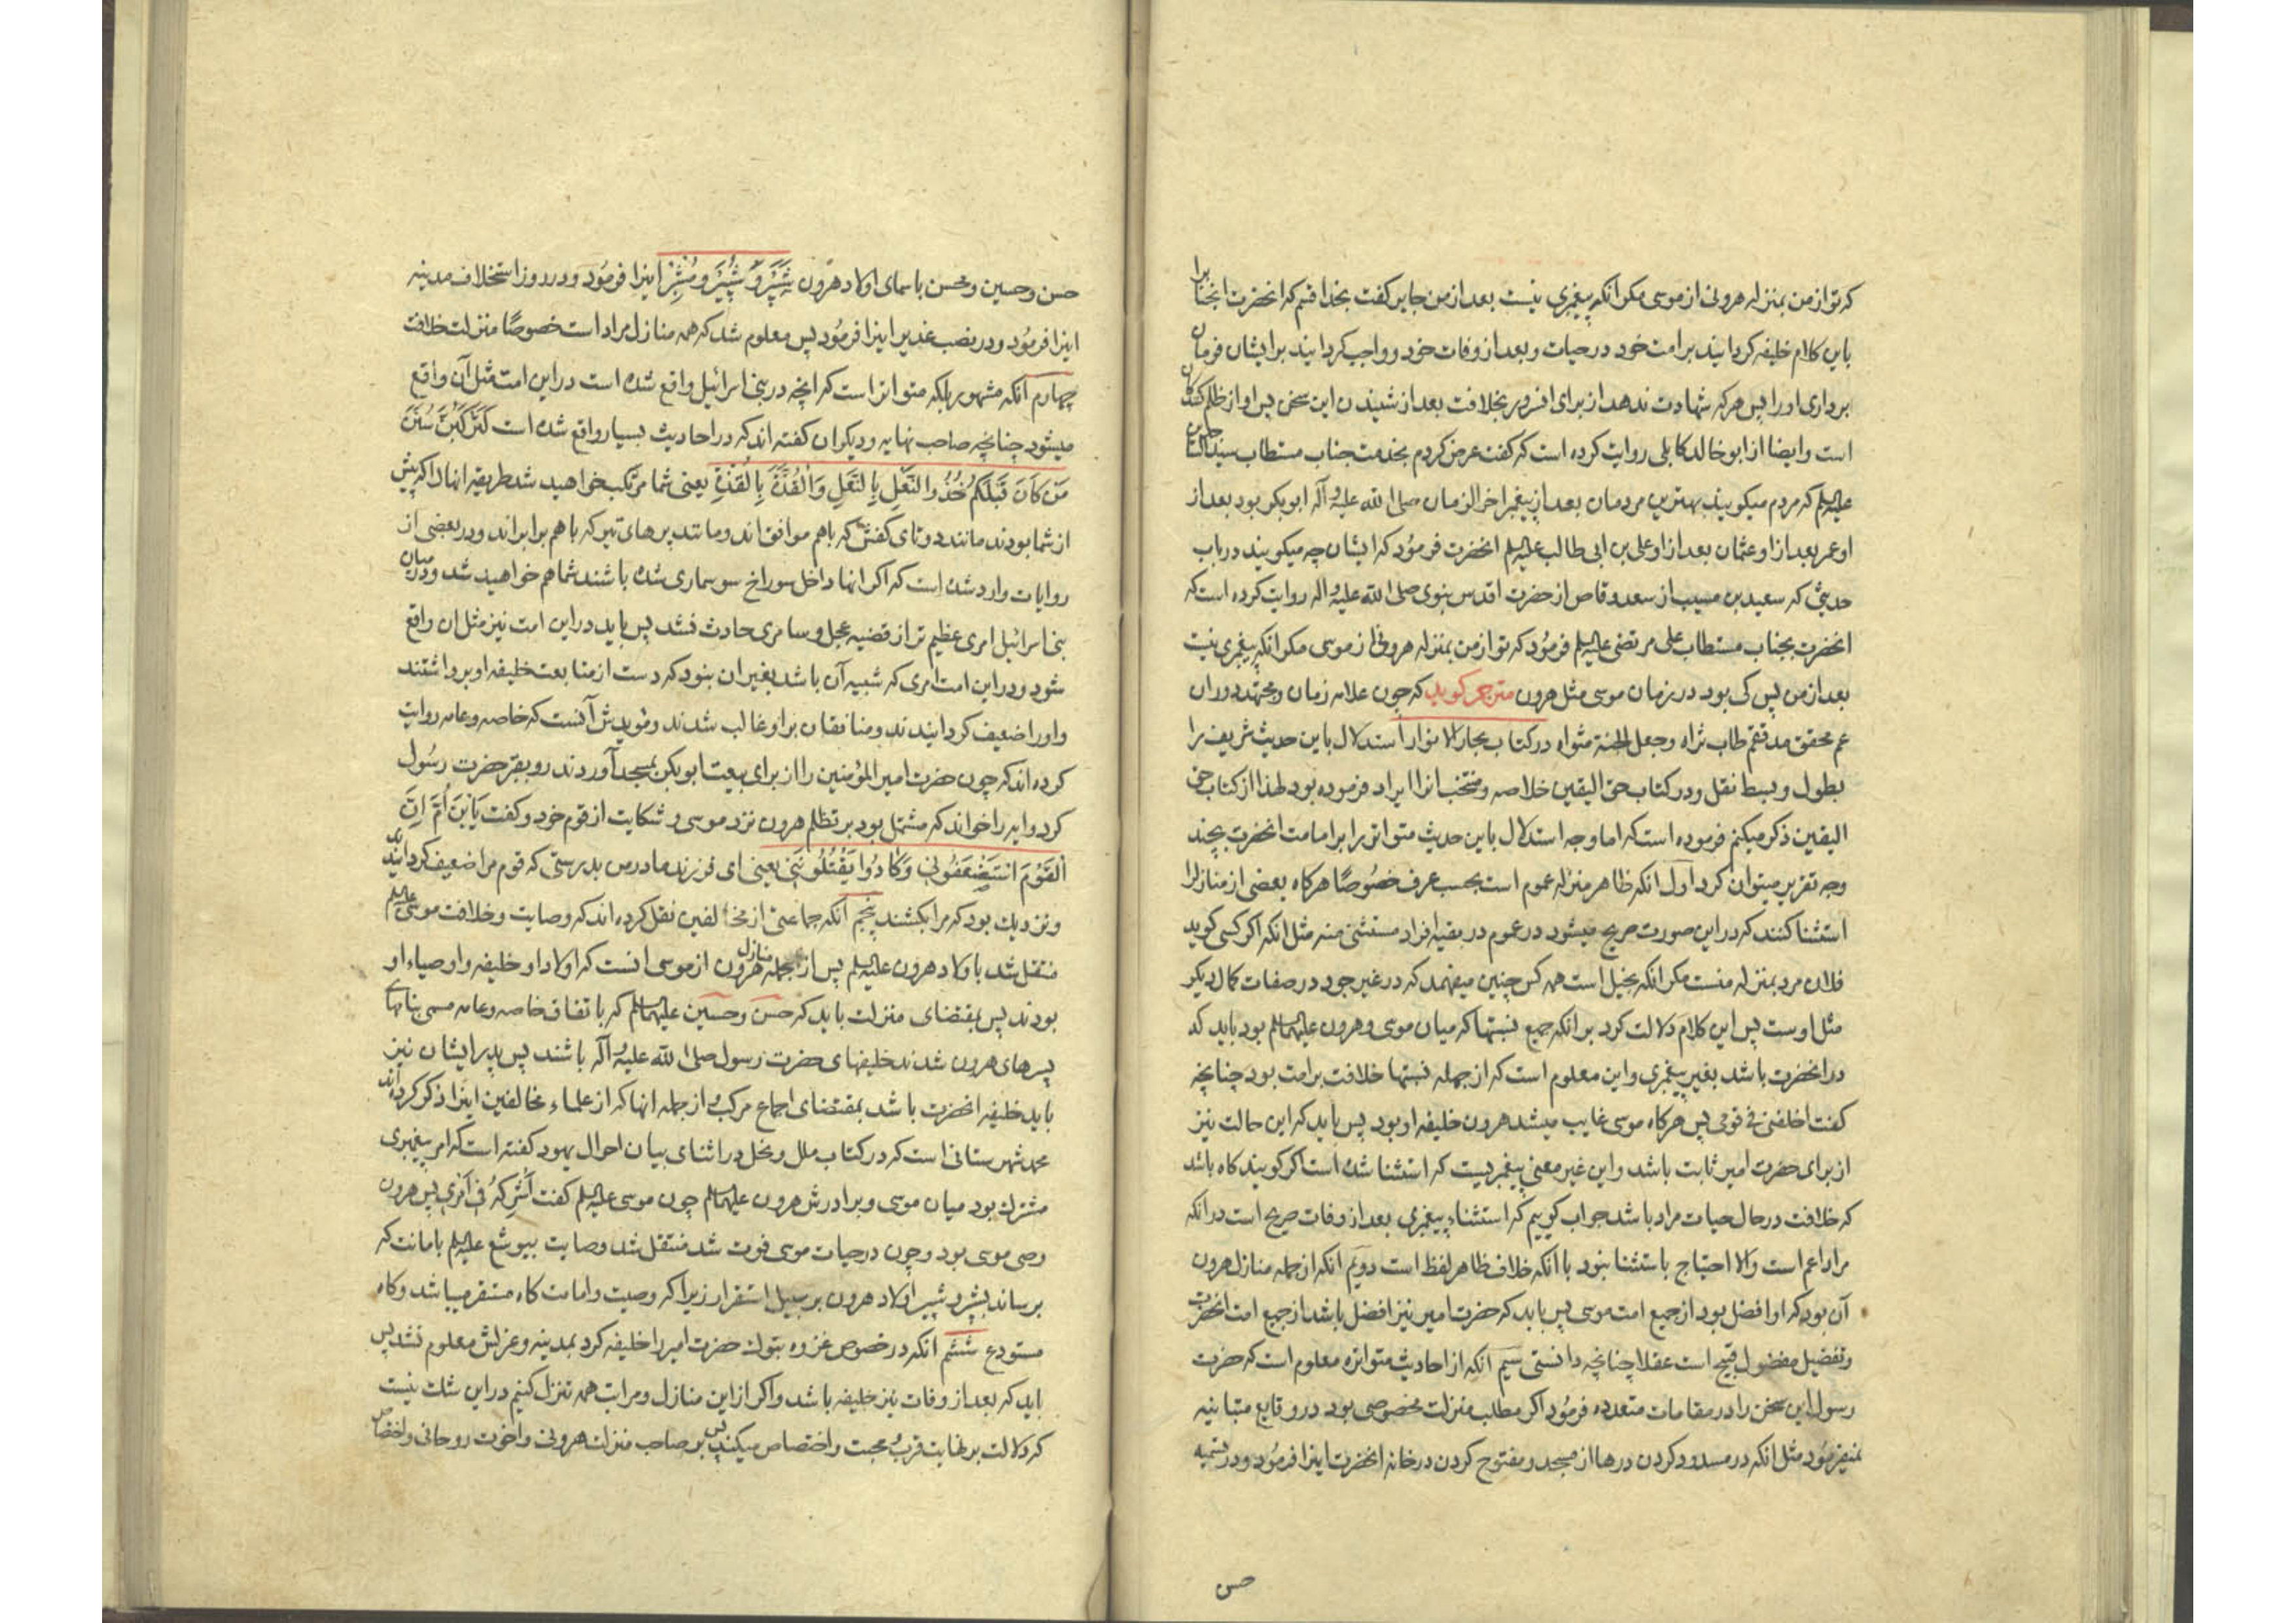 که تو از من بمنزله هرونی از موسی مکر انکه پیغمبری نیست بعد از من جابر کفت بخدا قسم که انحضرت انجناب را
باین کلام خلیفه کردانید بر امت خود در حیات و بعد از وفات خود و واجب کردانید بر ایشان فرمان
برداری او را پس هر که شهادت ندهد از برای افسرور بخلافت بعد از شنیدن این سخن پس او از ظلم کنندکان
است و ایضا از ابو خالد کابلی روایت کرده است که کفت عرض کردم بخدمت جناب مستطاب سید الساجدین
علیه السلم که مردم میکویند بهترین مردمان بعد از پیغمبر اخر الزمان صلی الله علیه و آله ابو بکر بود بعد از
او عمر بعد از او عثمان بعد از او علی بن ابی طالب علیه السلم انحضرت فرمود که ایشان چه میکویند در باب
حدیثی که سعید بن مسیب از سعد وقاص از حضرت اقدس نبوی صلی الله علیه و اله روایت کرده است که
انحضرت بجناب مستطاب علی مرتضی علیه السلم فرمود که تو از من بمنزله هرونی از موسی مکر انکه پیغمبری نیست
بعد از من پس کی بود در زمان موسی مثل هرون مترجم کوید که چون علامه زمان و مجتهد دوران
عم محقق مدققم طاب ثراه و جعل الجنة مثواه در کتاب بحار الانوار استدلال باین حدیث شریف را
بطول و بسط نقل و در کتاب حق الیقین خلاصه و منتخب انرا ایراد فرموده بود لهذا از کتاب حق
الیقین ذکر میکنم فرموده است که اما وجه استدلال باین حدیث متواتر را بر امامت انحضرت بچند
وجه تقریر میتوان کرد اول انکه ظاهر منزله عموم است بحسب عرف خصوصًا هرکاه بعضی از منازل را
استثنا کنند که در این صورت صریح میشود در عموم در بقیه افراد مستثنی منه مثل انکه اکر کسی کوید
فلان مرد بمنزله منست مکر انکه بخیل است همه کس چنین میفهمد که در غیر جود در صفات کمال دیکر
مثل اوست پس این کلام دلالت کرد بر انکه جمیع نسبتها که میان موسی و هرون علیهما السلم بود باید که
در انحضرت باشد بغیر پیغمبری و این معلوم است که از جمله نسبتها خلافت بر امت بود چنانچه
کفت اخلفنی فی قومی پس هرکاه موسی غایب میشد هرون خلیفه او بود پس باید که این حالت نیز
از برای حضرت امیر ثابت باشد و این غیر معنی پیغمبریست که استثنا شده است اکر کویند کاه باشد
که خلافت در حال حیات مراد باشد جواب کوییم که استثناء پیغمبری بعد از وفات صریح است در انکه
مراد اعم است والا احتیاج باستثنا نبود با انکه خلاف ظاهر لفظ است دویم انکه از جمله منازل هرون
آن بود که او افضل بود از جمیع امت موسی پس باید که حضرت امیر نیز افضل باشد از جمیع امت انحضرت
و تفضیل مفضول قبیح است عقلا چنانچه دانستی سیم آنکه از احادیث متواتره معلوم است که حضرت
رسول این سخن را در مقامات متعدده فرمود اکر مطلب منزلت مخصوصی بود در وقایع متباینه
نمیفرمود مثل انکه در مسدود کردن درها از مسجد و مفتوح کردن در خانه انحضرت اینرا فرمود و در تسمیه
حسن
حسن و حسین و محسن باسمای اولاد هرون شَبَّرْ وَ شُبَیْر وَ مُشَبِّرْ اینرا فرمود و در روز استخلاف مدینه
اینرا فرمود و در نصب غدیر اینرا فرمود پس معلوم شد که همه منازل مراد است خصوصًا منزلت خلافت
چهارم آنکه مشهور بلکه متواتر است که انچه در بنی اسرائیل واقع شده است در این امت مثل آن واقع
میشود چنانچه صاحب نهایه و دیکران کفته اند که در احادیث بسیار واقع شده است لَتَرْكَبُنَّ سُنَنَ
مَن كَانَ قَبْلَكُمْ حُذْوَ النَّعْلِ بِالنَّعْلِ وَالْقُذَّةِ بِالْقُذَّةِ یعنی شما مرتکب خواهید شد طریقه انها را که پیش
از شما بودند مانند دو تای کفش که باهم موافق اند و مانند پرهای تیر که باهم برابر اند و در بعضی از
روایات وارد شده است که اکر انها داخل سوراخ سوسماری شده باشند شما هم خواهید شد و در میان
بنی اسرائیل امری عظیم تر از قضیه عجل و سامری حادث نشد پس باید در این امت نیز مثل ان واقع
شود و در این امت امری که شبیه آن باشد بغیر ان نبود که دست از متابعت خلیفه او برداشتند
و اورا ضعیف کردانیدند و منافقان بر او غالب شدند و مؤیدش آنست که خاصه و عامه روایت
کرده اند که چون حضرت امیر المؤمنین را از برای بیعت ابو بکر بمسجد آوردند رو بقبر حضرت رسول
کرد و ایه را خواند که مشتمل بود بر تظلم هرون نزد موسی و شکایت از قوم خود و کفت یَابْنَ اُمَّ اِنَّ
الْقَوْمَ اسْتَضْعَفُونِی وَکَادُوا یَقْتُلُونَنِی یعنی ای فرزند مادر من بدرستی که قوم مرا ضعیف کردانیدند
و نزدیک بود که مرا بکشند پنجم آنکه جماعتی از مخالفین نقل کرده اند که وصایت و خلافت موسی علیه السلم
منتقل شد باولاد هرون علیه السلم پس از جمله منازل هرون از موسی انست که اولاد او خلیفه و اوصیاء او
بودند پس بمقتضای منزلت باید که حسن و حسین علیهما السلم که باتفاق خاصه و عامه مسمی بنامهای
پسرهای هرون شدند خلیفهای حضرت رسول صلی الله علیه و آله باشند پس پدر ایشان نیز
باید خلیفه انحضرت باشد بمقتضای اجماع مرکب و از جمله انها که از علماء مخالفین اینرا ذکر کرده اند
محمد شهرستانی است که در کتاب ملل و نحل در اثنای بیان احوال یهود کفته است که امر پیغمبری
مشترک بود میان موسی و برادرش هرون علیهما السلم چون موسی علیه السلم کفت اَشْرِکْهُ فِی اَمْرِی پس هرون
وصی موسی بود و چون در حیات موسی فوت شد منتقل شد وصایت بیوشع علیه السلم بامانت که
برساند بشبر و شبیر اولاد هرون بر سبیل استقرار زیرا که وصیت و امامت کاه مستقر میباشد و کاه
مستودع ششم انکه در خصوص غزوه تبوک حضرت امیر را خلیفه کرد بمدینه و عزلش معلوم نشد پس
باید که بعد از وفات نیز خلیفه باشد و اکر از این منازل و مراتب همه تنزل کنیم در این شک نیست
که دلالت بر نهایت قرب و محبت و اختصاص میکند پس بر صاحب منزلت هرونی و اخوت روحانی و اختصاص